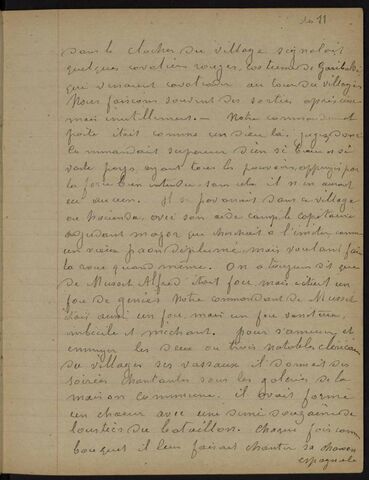 11
dans le clocher du village signalait
quelques cavaliers rouges, costume de Garibaldi
qui venaient cavalcader autour du village
Nous faisions souvent des sorties après eux
mais inutilement. - Notre commandant
poète était comme un dieu là. jugez donc
commandant supérieur d'un si beau et si
vaste pays, ayant tous les pouvoirs, appuyés par
la force bien entendu, sans cela il n'en aurait
eu aucun. Il se pavanait dans ce village
ou hacienda, avec son aide de camp le capitaine
adjudant major qui cherchait à l'imiter comme
un vieux paon déplumé, mais voulant faire
la roue quand même. On a toujours dit que
de Musset Alfred était fou mais c'était un
fou de génie. Notre commandant de Musset
était aussi un fou, mais un fou vaniteux,
imbécile et méchant. pour s'amuser, et
ennuyer les deux ou trois notables
du village ses vassaux il donnait des
soirées chantantes sous les galeries de la
maison commune. il avait formé
un chœur avec une demi douzaine de
loustics du bataillon. chaque fois comme
bouquet il leur faisait chanter sa chanson
espagnole